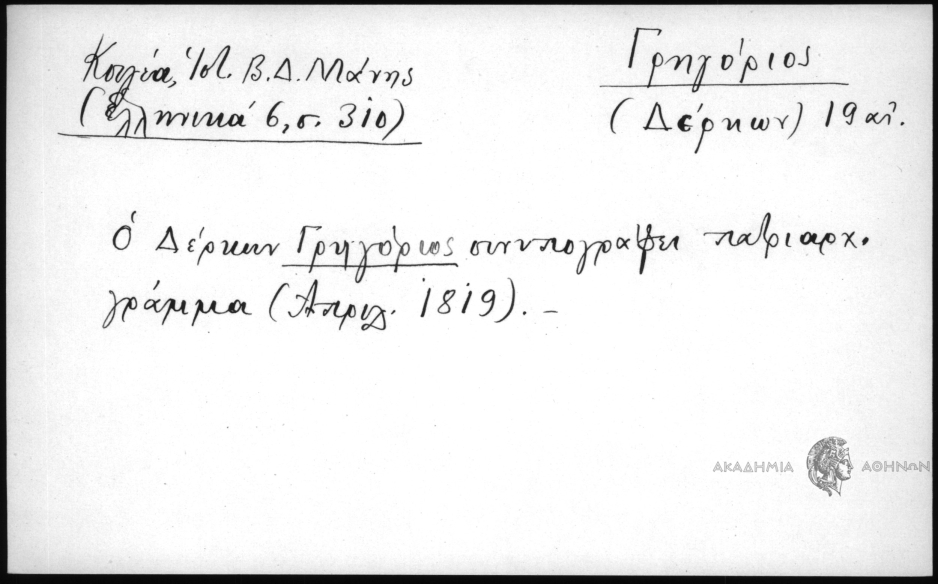 Κουγέα, Ἱστ. Β.Δ. Μάνης
(Ἑλληνικά 6, σ. 310)
Γρηγόριος
(Δέρκων) 19 αἰ.
Ὁ Δέρκων Γρηγόριος συνυπογράφει πατριαρχ.
γράμμα (Ἀπριλ. 1819). –
ΑΚΑΔΗΜΙΑ ΑΘΗΝΩΝ